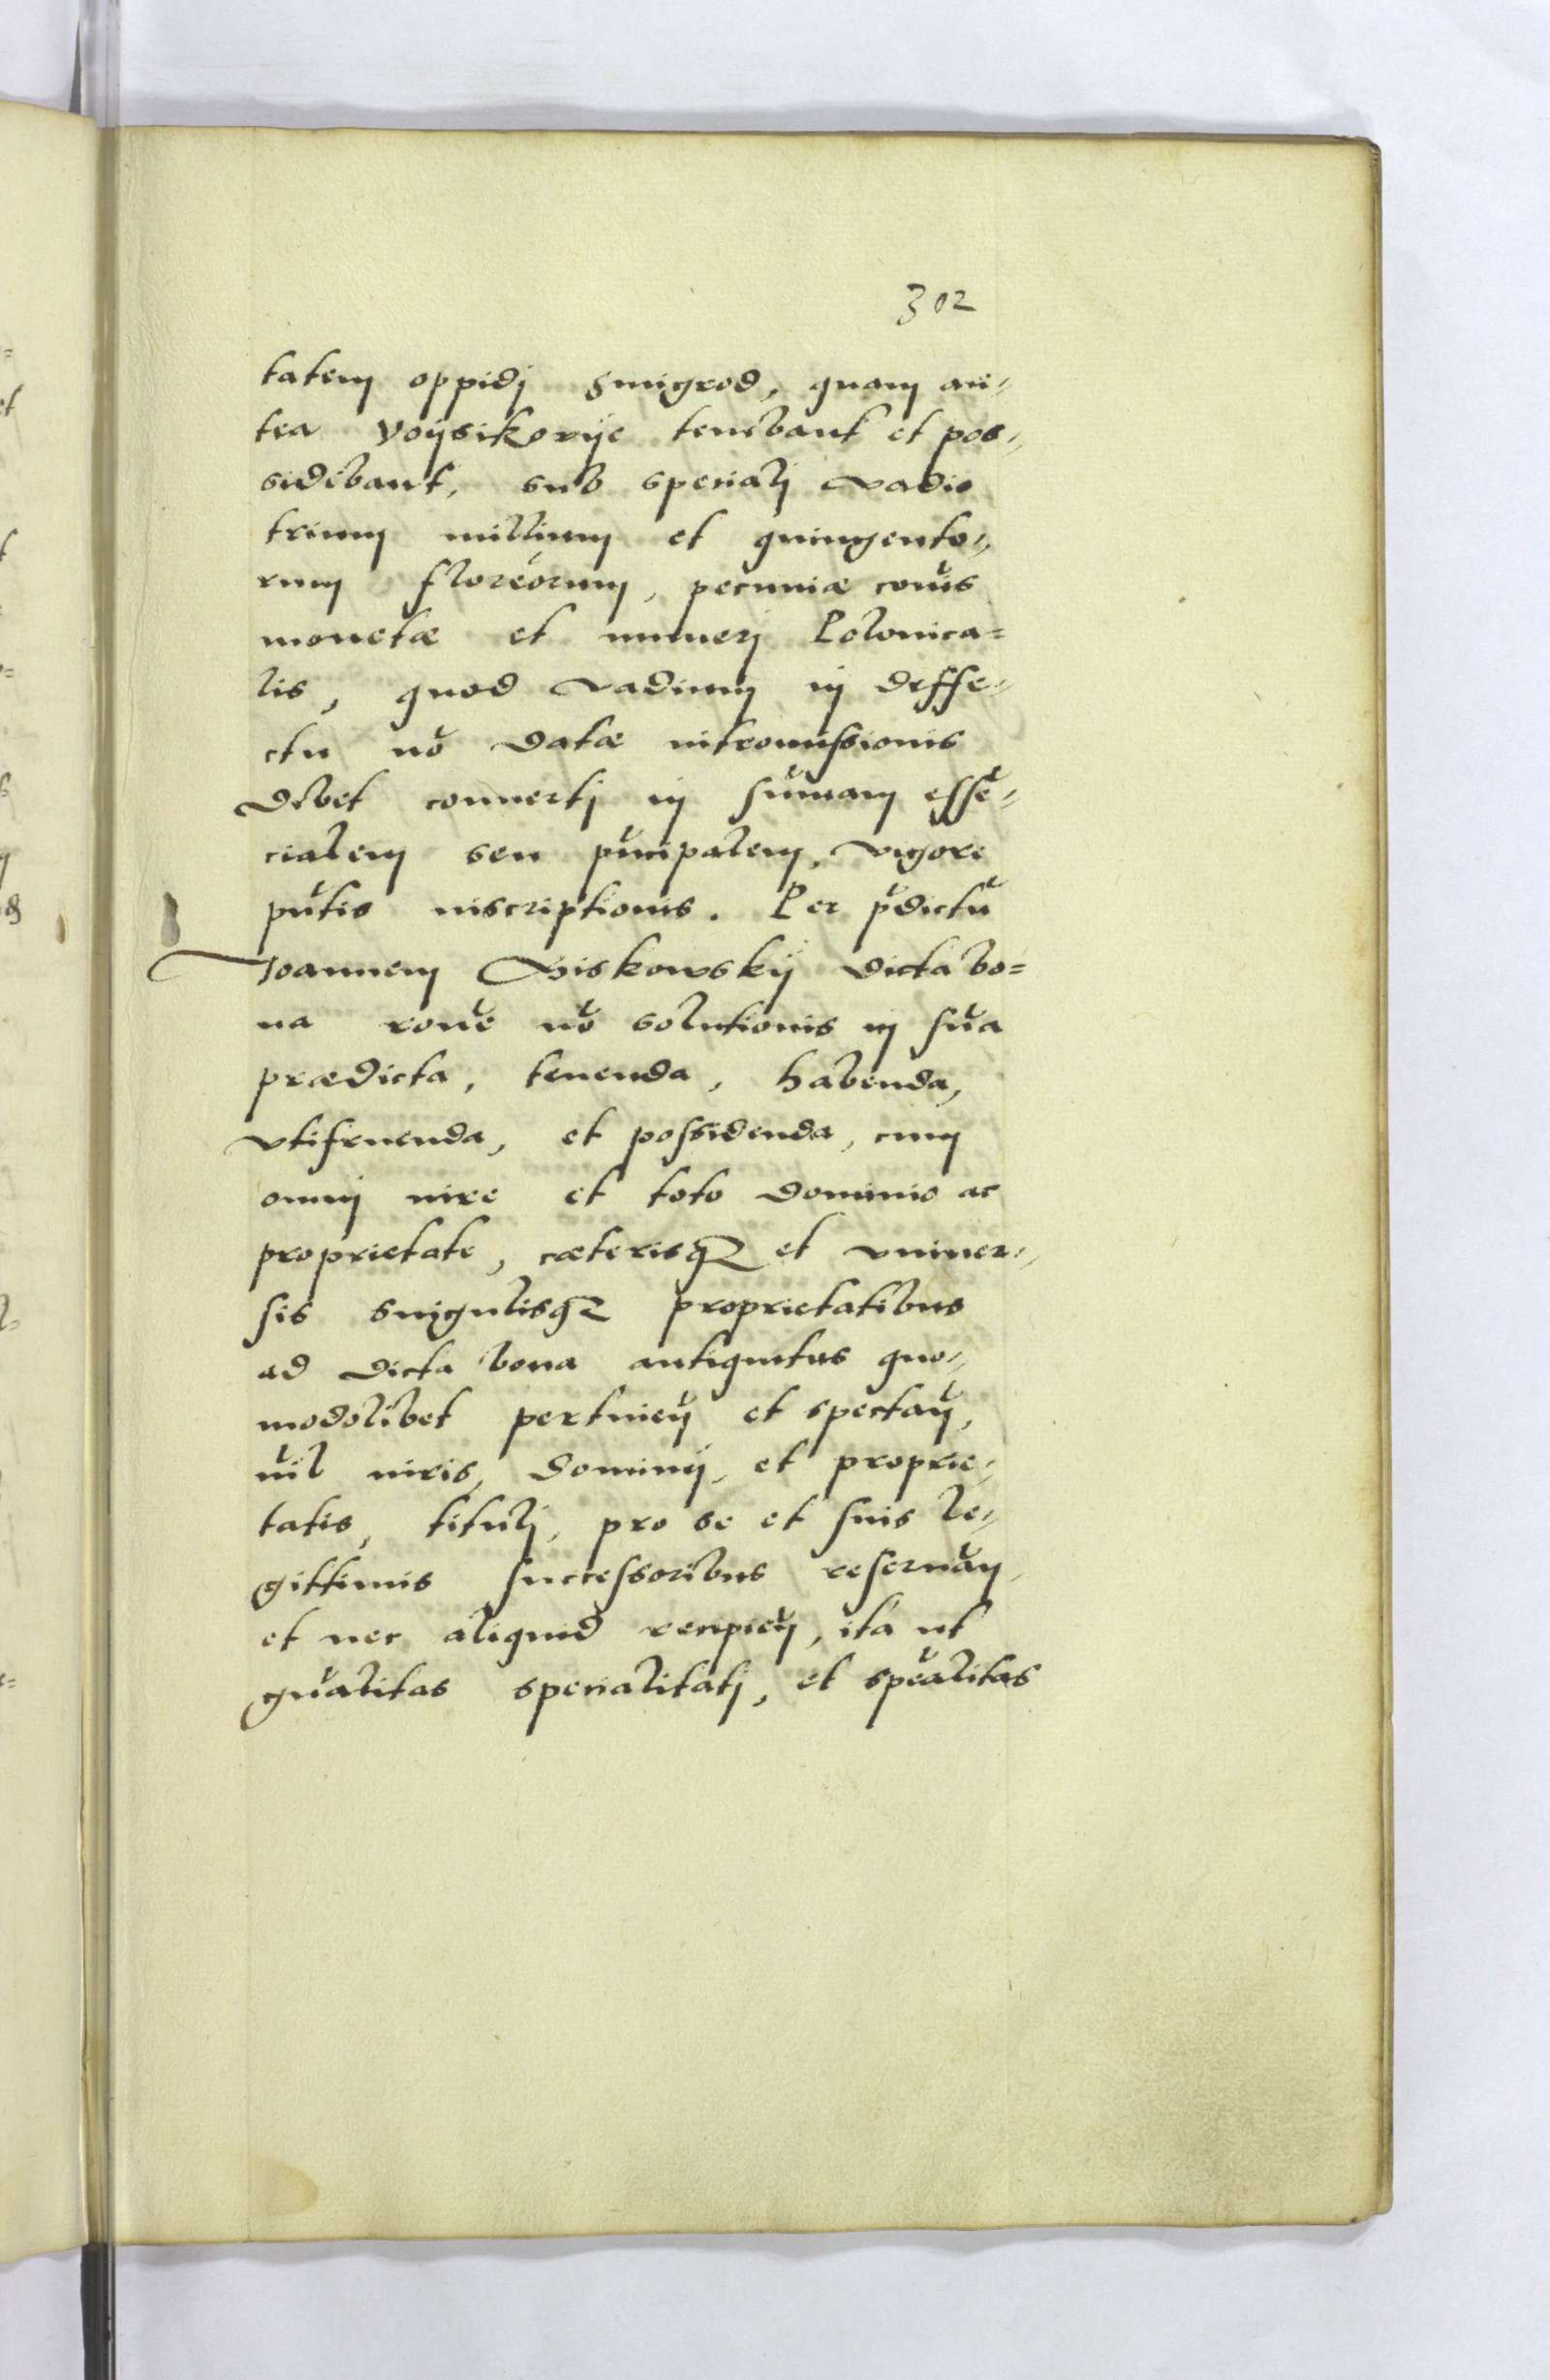 302
tatem oppidj Smigrod, quam an⸗
tea Voÿsikovÿe tenebant et pos⸗
sidebant, sub specialj vadio
trium millium et quingento⸗
rum floreorum, pecuniæ cōĩs
monetæ et numerj Polonica⸗
lis, quod vadium in deffe⸗
ctu nō datæ intromissionis
debet convertj in sūmam essē⸗
cialem seu pñcipalem, vigore
pñtis inscriptionis. Per p̃dictū
Joannem Biskowskÿ dicta bo⸗
na rōne nō solutionis in sūa
prædicta, tenenda, habenda,
utifruenda, et possidenda, cum
omnj iure et toto dominio ac
proprietate, cæterisq̃ et univer⸗
sis singulisq̃ proprietatibus
ad dicta bona antiquitus quo⸗
modolibet pertineñ et spectañ,
nil iuris, dominij, et proprie⸗
tatis, titulj, pro se et suis le⸗
gittimis successoribus reservañ
et nec aliquid recipieñ, ita ut
gñalitas specialitatj, et spēalitas